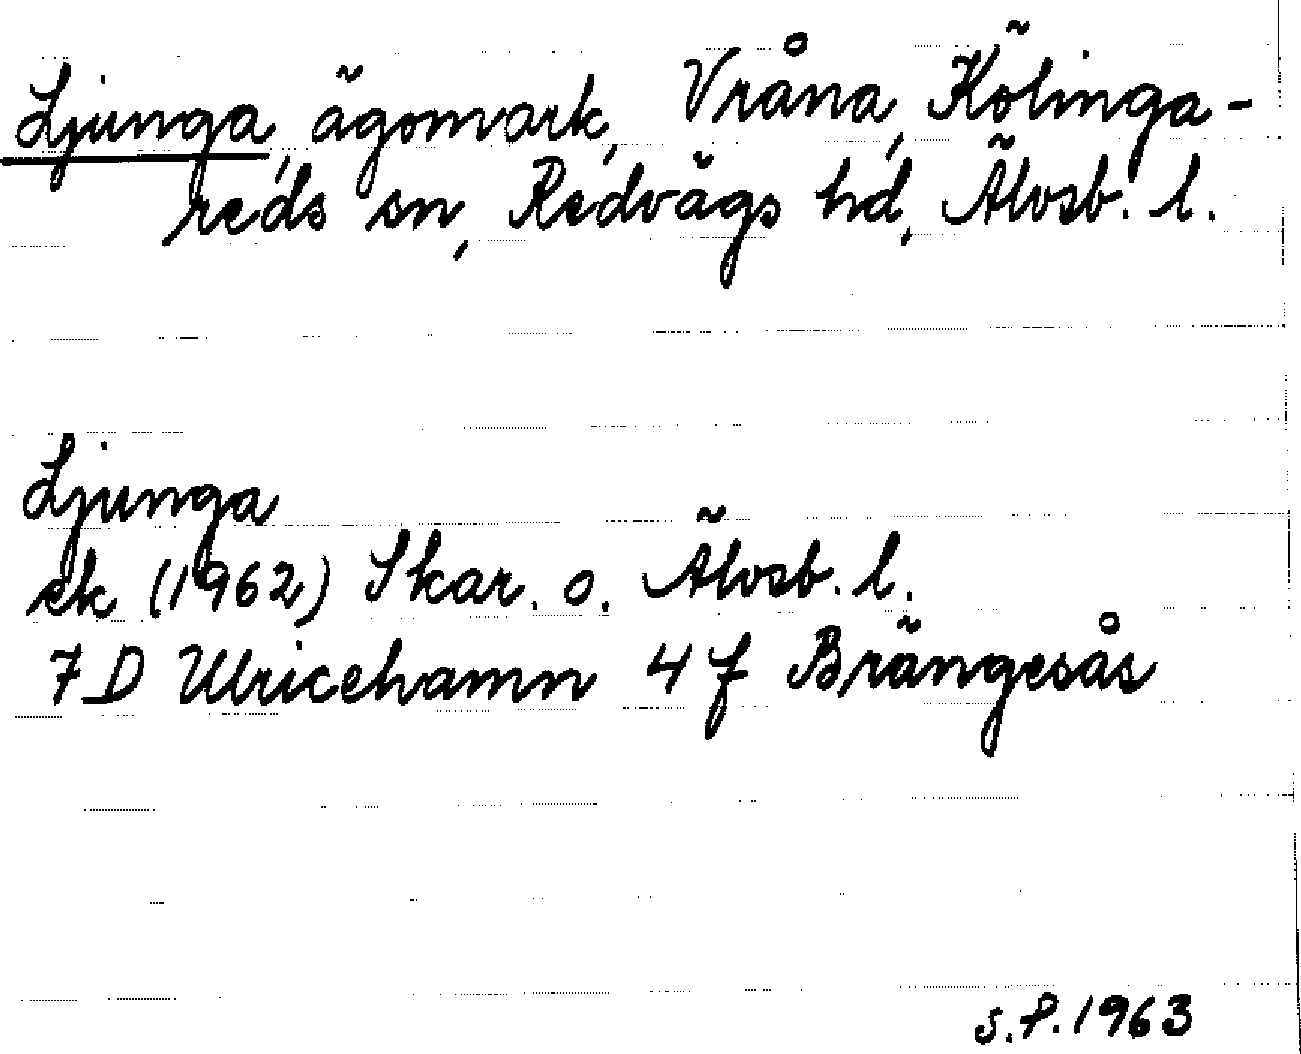 Ljunga, ägomark, Vråna, Kölinga-
reds sn, Redvägs hd, Älvsb. l.
Ljunga
ek (1962) Skar. o. Älvsb. l.
7 D Ulricehamn 4 f Brängesås
S.P. 1963